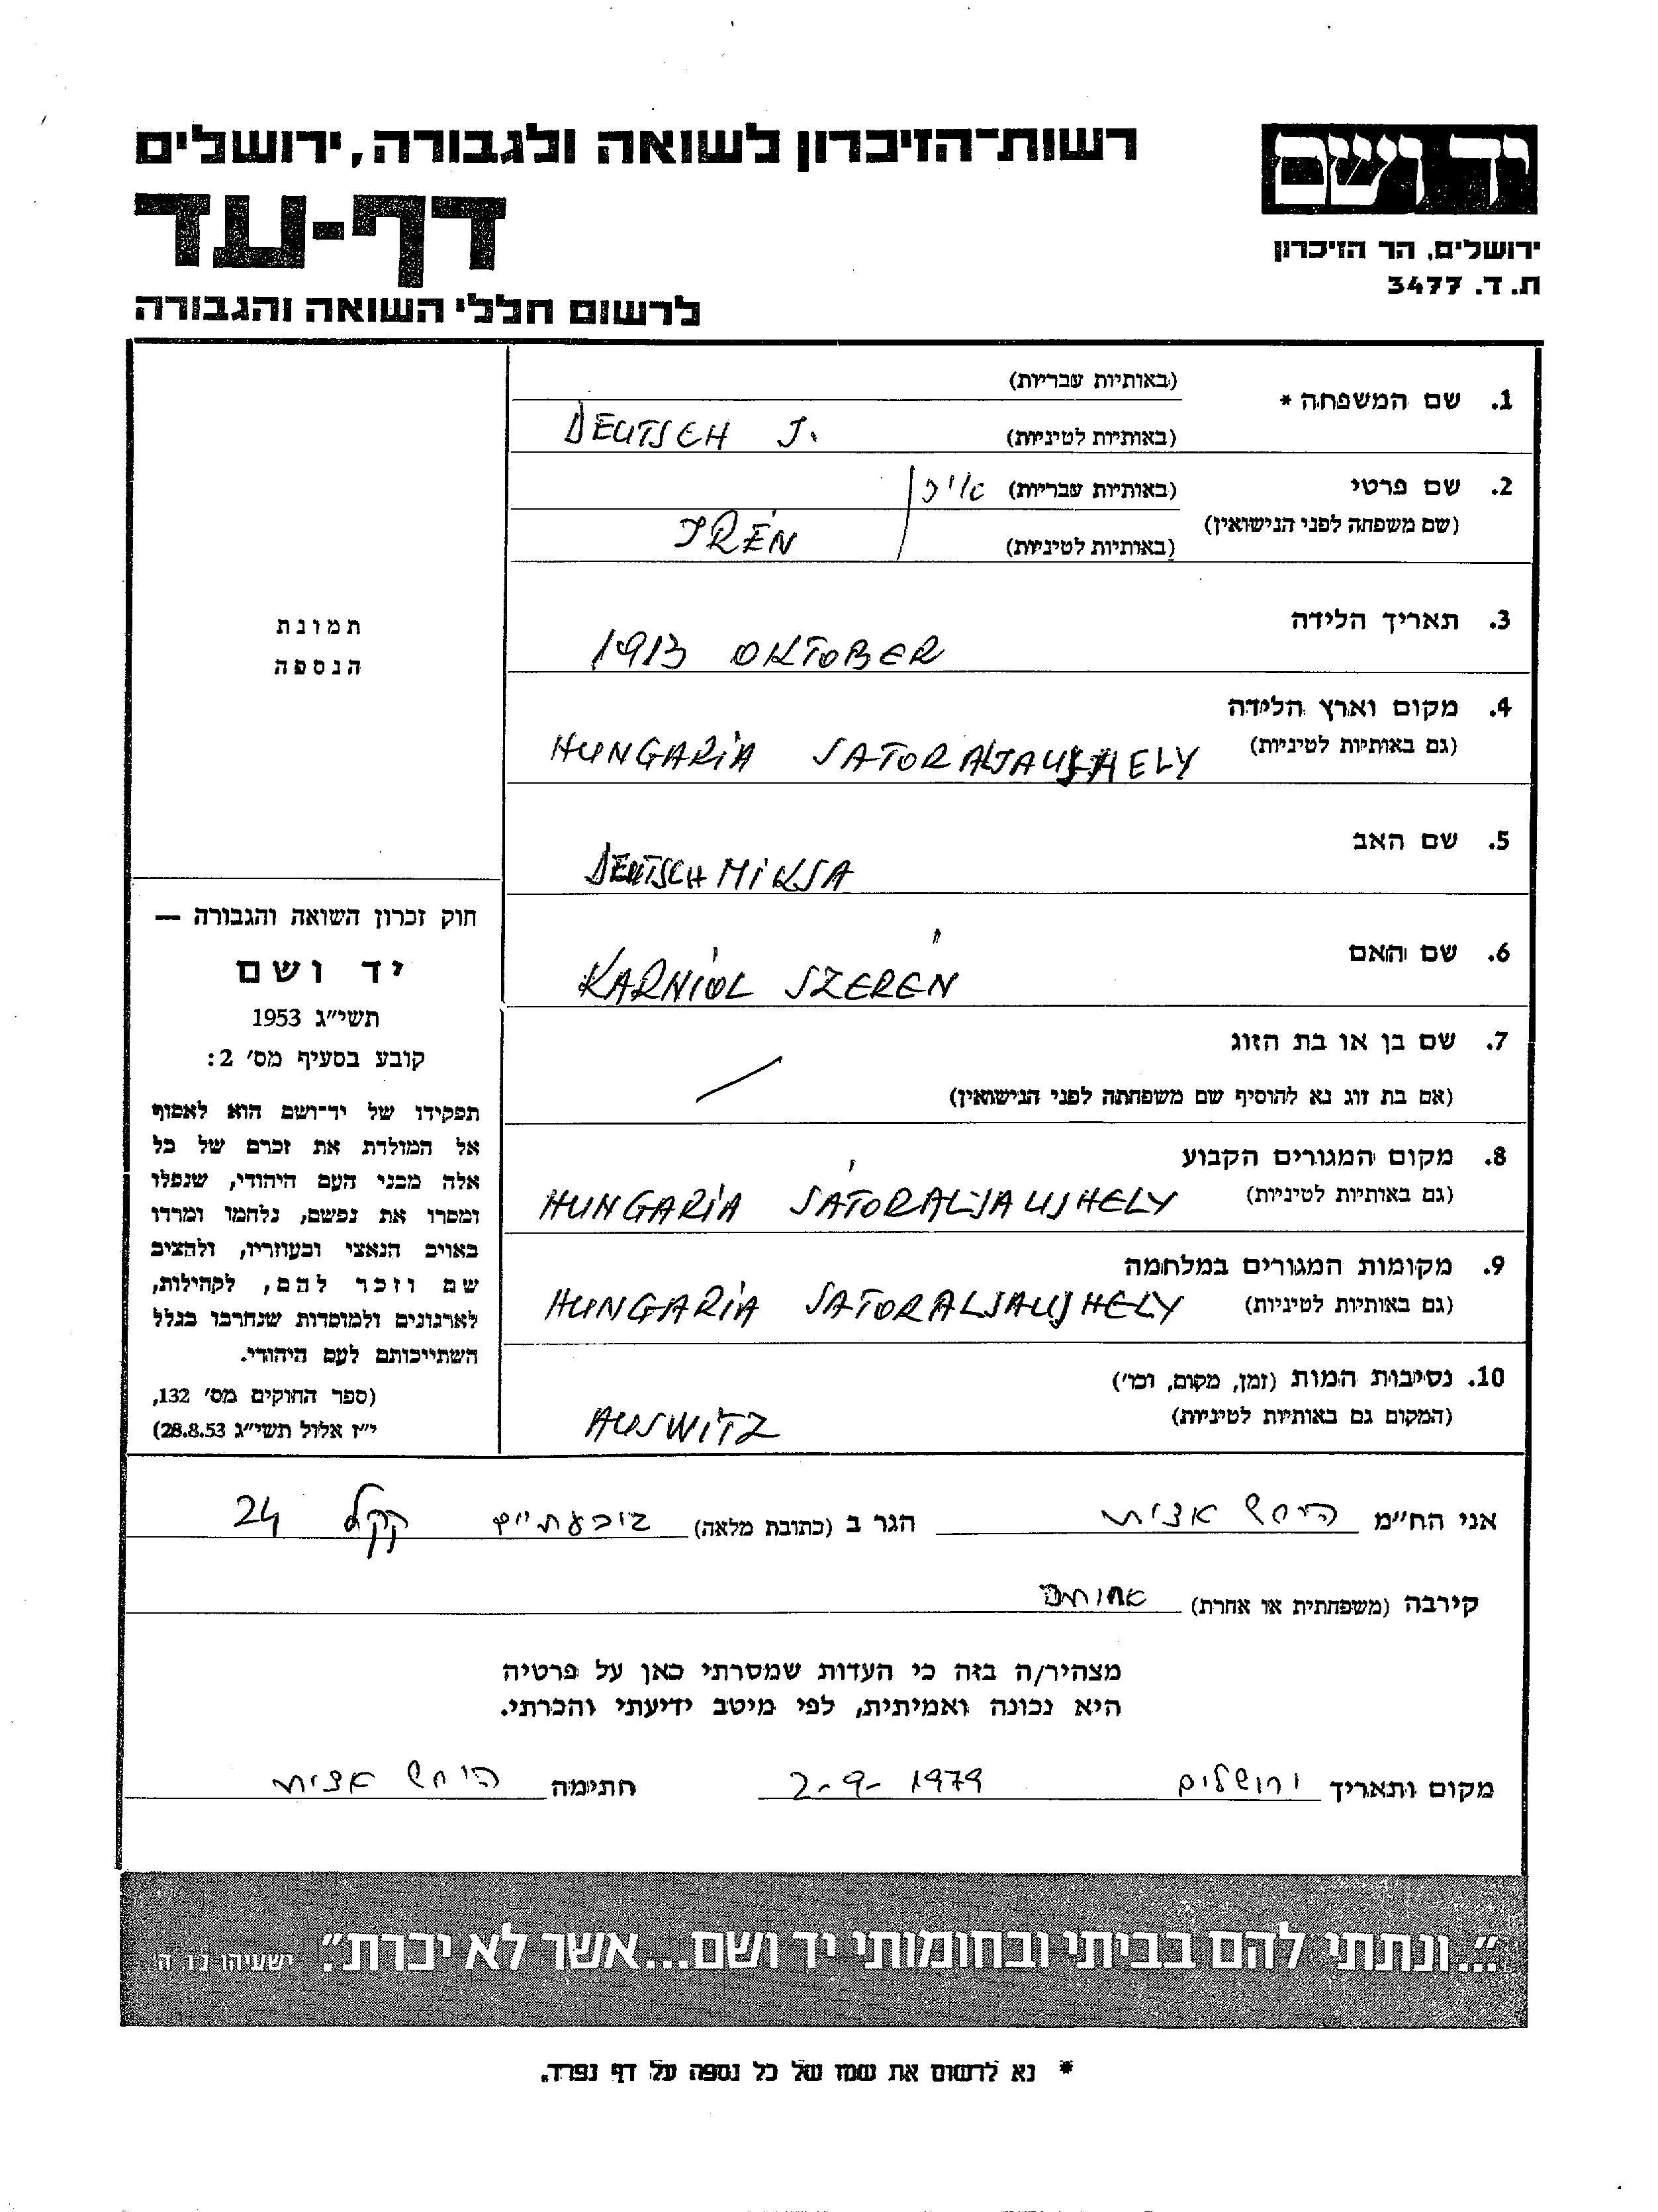 יד ושם
ירושלים, הר הזיכרון
ת. ד. 3477
רשות־הזיכרון לשואה ולגבורה, ירושלים
דף-עד
לרשום חללי השואה והגבורה
1. שם המשפחה * (באותיות עבריות)
(באותיות לטיניות) DEUTSCH J.
2. שם פרטי (באותיות עבריות)
(שם משפחה לפני הנישואין) (באותיות לטיניות) IRÉN
3. תאריך הלידה 1913 OKTOBER
4. מקום וארץ הלידה
(גם באותיות לטיניות) HUNGARIA SATORALJAUJHELY
5. שם האב DEUTSCH MIKSA
6. שם האם KARNIOL SZERÉN
7. שם בן או בת הזוג
(אם בת זוג נא להוסיף שם משפחתה לפני הנישואין)
8. מקום המגורים הקבוע
(גם באותיות לטיניות) HUNGARIA SÁTORALJAUJHELY
9. מקומות המגורים במלחמה
(גם באותיות לטיניות) HUNGARIA SATORALJAUJHELY
10. נסיבות המות (זמן, מקום, וכו')
(המקום גם באותיות לטיניות) AUSWITZ
תמונת
הנספה
חוק זכרון השואה והגבורה —
יד ושם
תשי"ג 1953
קובע בסעיף מס' 2:
תפקידו של יד־ושם הוא לאסוף
אל המולדת את זכרם של כל
אלה מבני העם היהודי, שנפלו
ומסרו את נפשם, נלחמו ומרדו
באויב הנאצי ובעוזריו, ולהציב
שם וזכר להם, לקהילות,
לארגונים ולמוסדות שנחרבו בגלל
השתייכותם לעם היהודי.
(ספר החוקים מס' 132,
י"ז אלול תשי"ג 28.8.53)
אני הח"מ הגר ב (כתובת מלאה) גבעתיים קקל 24
קירבה (משפחתית או אחרת) אחותה
מצהיר/ה בזה כי העדות שמסרתי כאן על פרטיה
היא נכונה ואמיתית, לפי מיטב ידיעתי והכרתי.
מקום ותאריך ירושלים 2-9-1979 חתימה
"...ונתתי להם בביתי ובחומותי יד ושם...אשר לא יכרת". ישעיהו נו ה
* נא לרשום את שמו של כל נספה על דף נפרד.